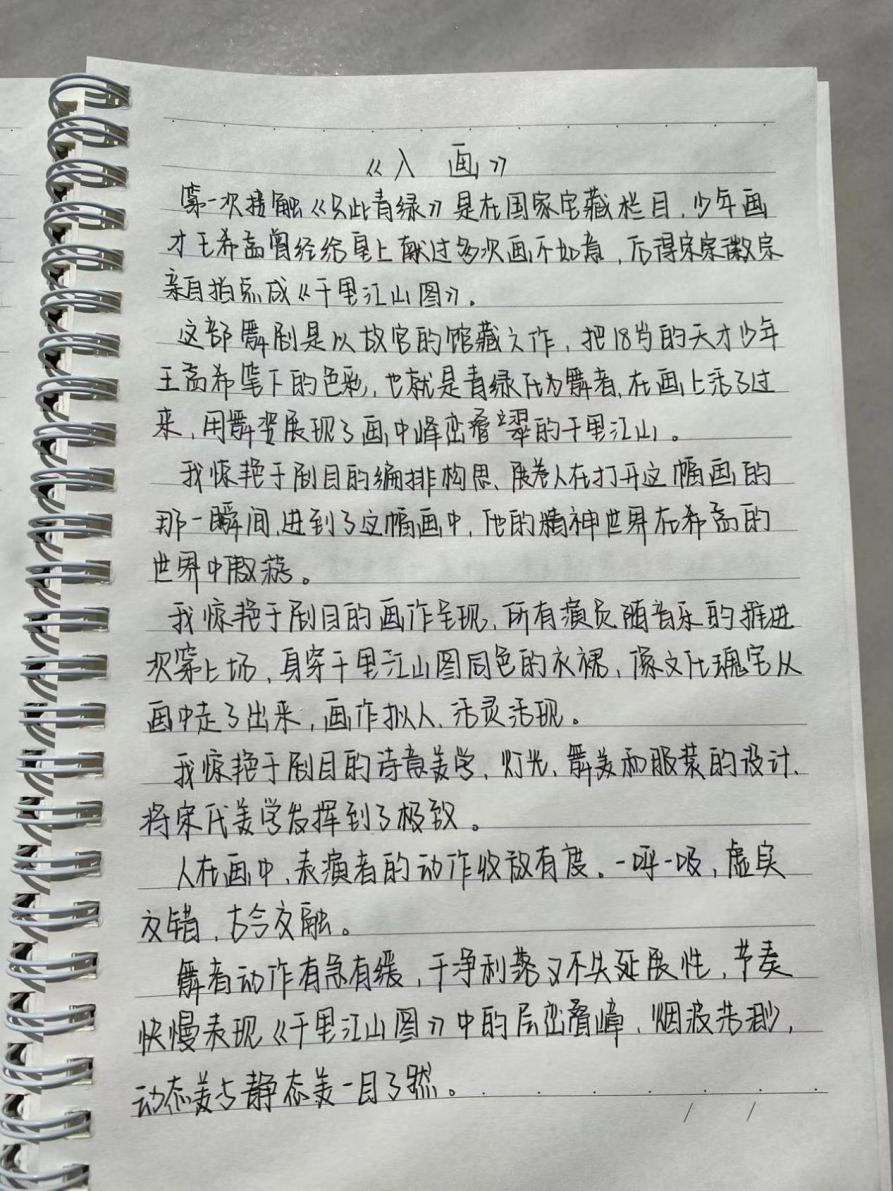 《入画》
第一次接触《只此青绿》是在国家宝藏栏目，少年画
才王希孟曾经给皇上献过多次画不如意，后得宋宗徽宗
亲自指点成《千里江山图》。
这部舞剧是以故宫的馆藏之作，把18岁的天才少年
王孟希笔下的色彩，也就是青绿化为舞者，在画上活了过
来，用舞姿展现了画中峰峦叠翠的千里江山。
我惊艳于剧目的编排构思、展卷人在打开这幅画的
那一瞬间，进到了这幅画中，他的精神世界在希孟的
世界中遨游。
我惊艳于剧目的画作呈现，所有演员随音乐的推进
次第上场，身穿千里江山图同色的衣裙，像文化瑰宝从
画中走了出来，画作拟人、活灵活现。
我惊艳于剧目的诗意美学，灯光、舞美和服装的设计、
将宋代美学发挥到了极致。
人在画中，表演者的动作收放有度。一呼一吸，虚实
交错，古今交融。
舞者动作有急有缓，干净利落又不失延展性，节奏
快慢表现《千里江山图》中的层峦叠嶂，烟波浩渺，
动态美与静态美一目了然。